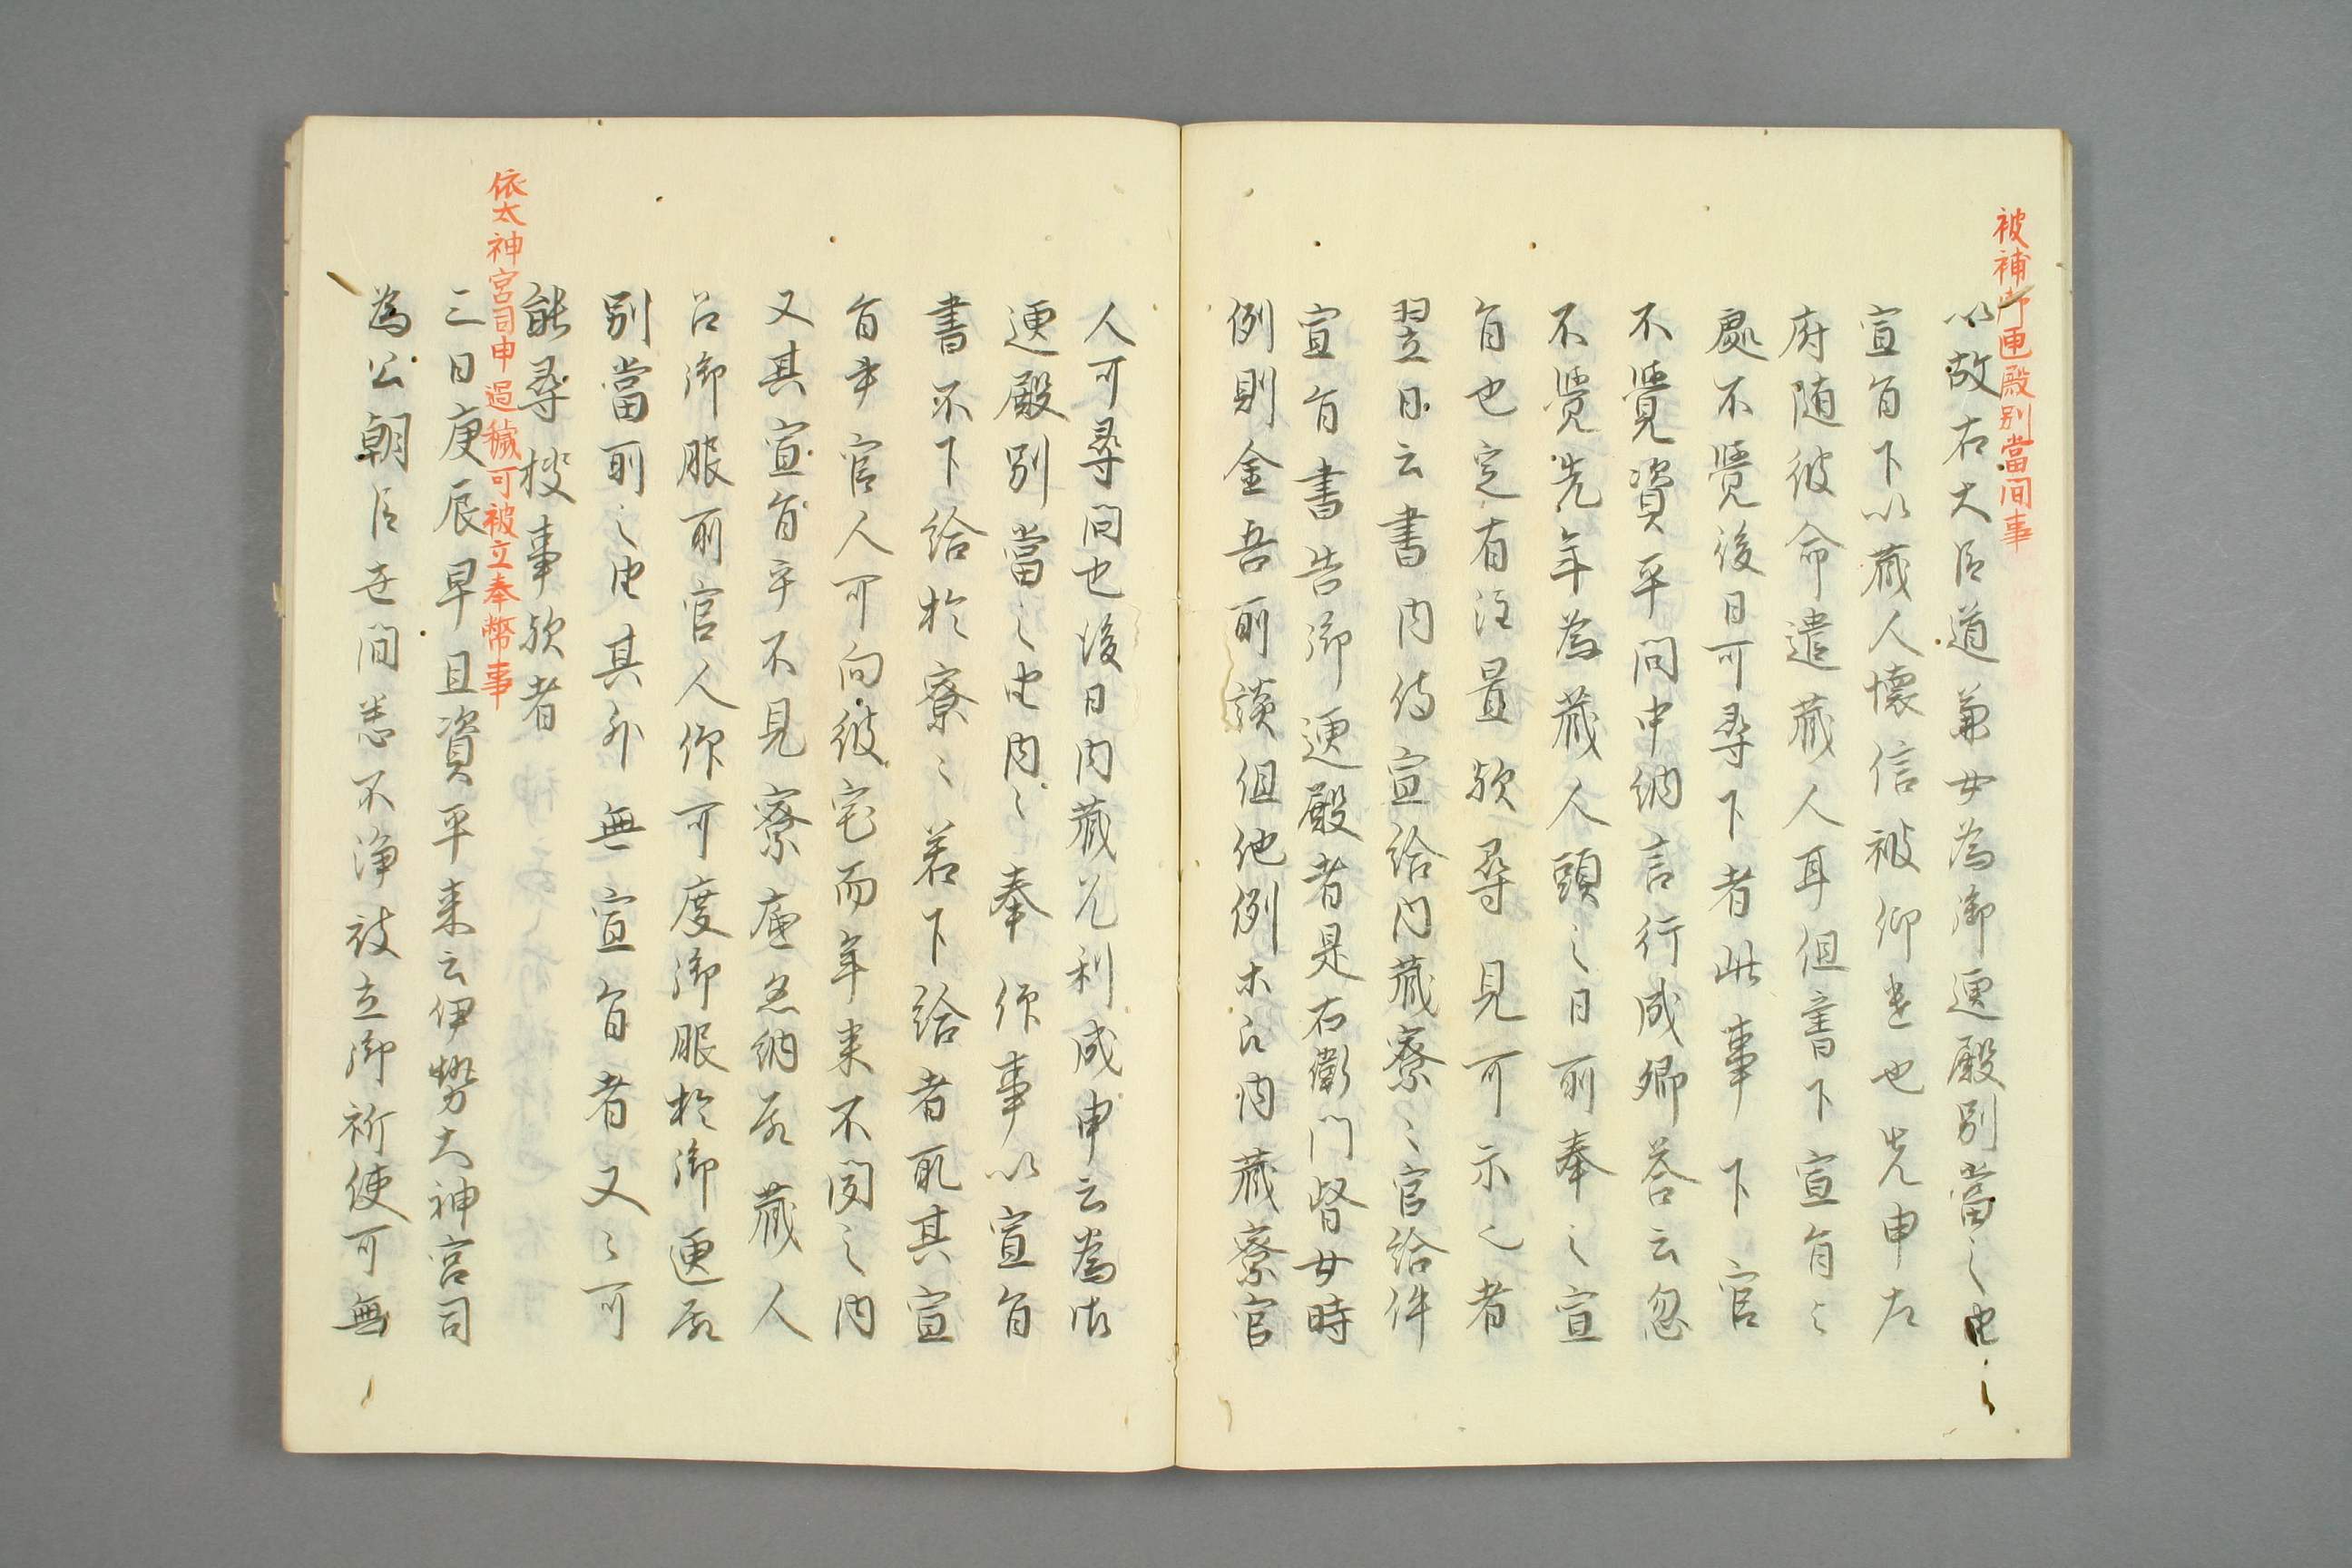 被補御匣殿別當間事
以故右大臣道兼女為御匣殿別當之由
宣旨下以蔵人懐信被仰遣也先申左
府随彼命遣蔵人耳但書下宣旨之
處不覺後日可尋下者此事下官
不覺資平問中納言行成卿答云忽
不覺先年為蔵人頭之日所奉之宣
旨也定有注置歟尋見可示之者
翌日云書内侍宣給内蔵寮々官給件
宣旨書告御匣殿者是右衛門督女時
例則金吾所談但他例未詳内蔵寮官
人可尋問也後日内蔵允利成申云為御
匣殿別當之由内々奉仰事以宣旨
書不下給於寮々若下給者取其宣
旨本官人可向彼宅而年来不聞之内
又其宣旨乎不見寮底忽納殿蔵人
召御服所官人仰可度御服於御匣殿
別當所之由其外無宣旨者又々可
能尋捜事歟者
依太神宮司申過穢可被立奉幣事
三日庚辰早旦資平来云伊勢大神宮司
為公朝臣云間悉不浄被立御祈使可無